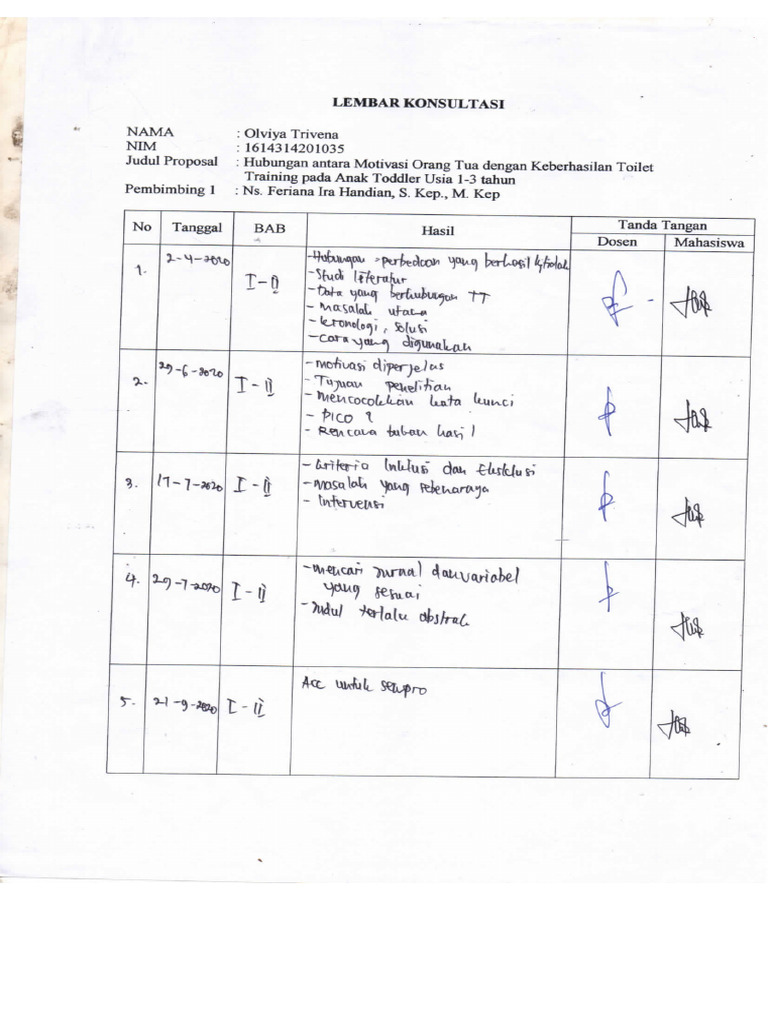 LEMBAR KONSULTASI
NAMA : Olviya Trivena
NIM : 1614314201035
Judul Proposal : Hubungan antara Motivasi Orang Tua dengan Keberhasilan Toilet
Training pada Anak Toddler Usia 1-3 tahun
Pembimbing 1 : Ns. Feriana Ira Handian, S. Kep., M. Kep
No Tanggal BAB Hasil Tanda Tangan
Dosen Mahasiswa
1. 2-4-2020 I-II
-Hubungan perbedaan yang berhasil
-Studi literatur
-Data yang berhubungan TT
-Masalah utama
-kronologi, solusi
-Cara yang digunakan
2. 29-6-2020 I-II
-motivasi diperjelas
-Tujuan penelitian
-Mencocokkan kata kunci
-PICO ?
-Rencana hasil
3. 17-7-2020 I-II
-Kriteria Inklusi dan Eksklusi
-Masalah yang sebenarnya
-Intervensi
4. 29-7-2020 I-II
-mencari Jurnal dan variabel
yang sesuai
-Judul terlalu abstrak
5. 21-9-2020 I-II
Acc untuk sempro